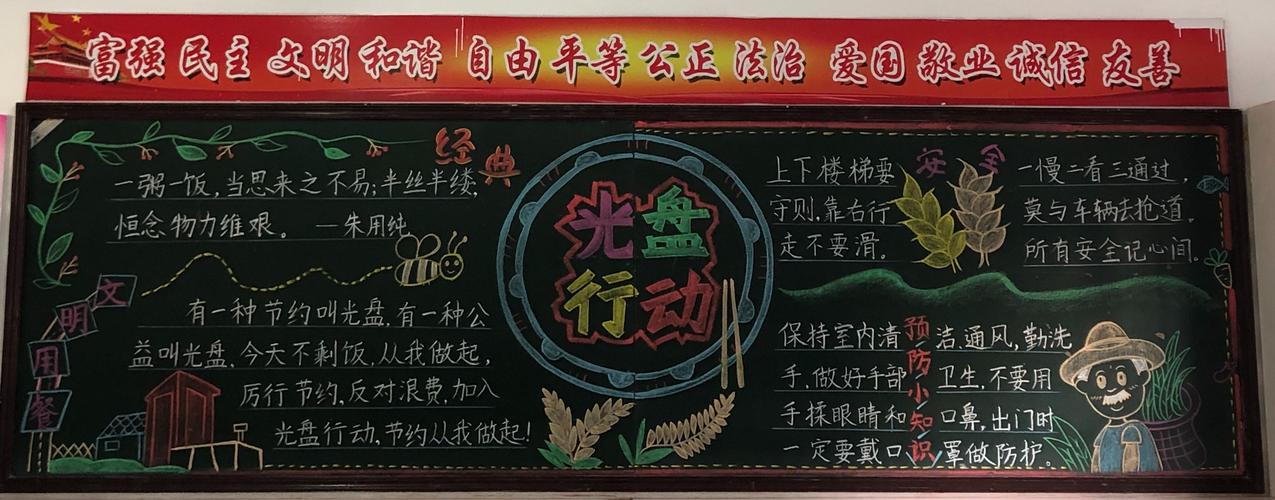 富强 民主 文明 和谐 自由 平等 公正 法治 爱国 敬业 诚信 友善
经典
一粥一饭,当思来之不易;半丝半缕,
恒念物力维艰。 —朱用纯
文明用餐
有一种节约叫光盘,有一种公
益叫光盘,今天不剩饭,从我做起,
厉行节约,反对浪费,加入
光盘行动,节约从我做起!
光盘
行动
安全
上下楼梯要
守则,靠右行
走不要滑。
一慢二看三通过,
莫与车辆去抢道。
所有安全记心间。
预防小知识
保持室内清洁,通风,勤洗
手,做好手部卫生,不要用
手揉眼睛和口鼻,出门时
一定要戴口罩做防护。